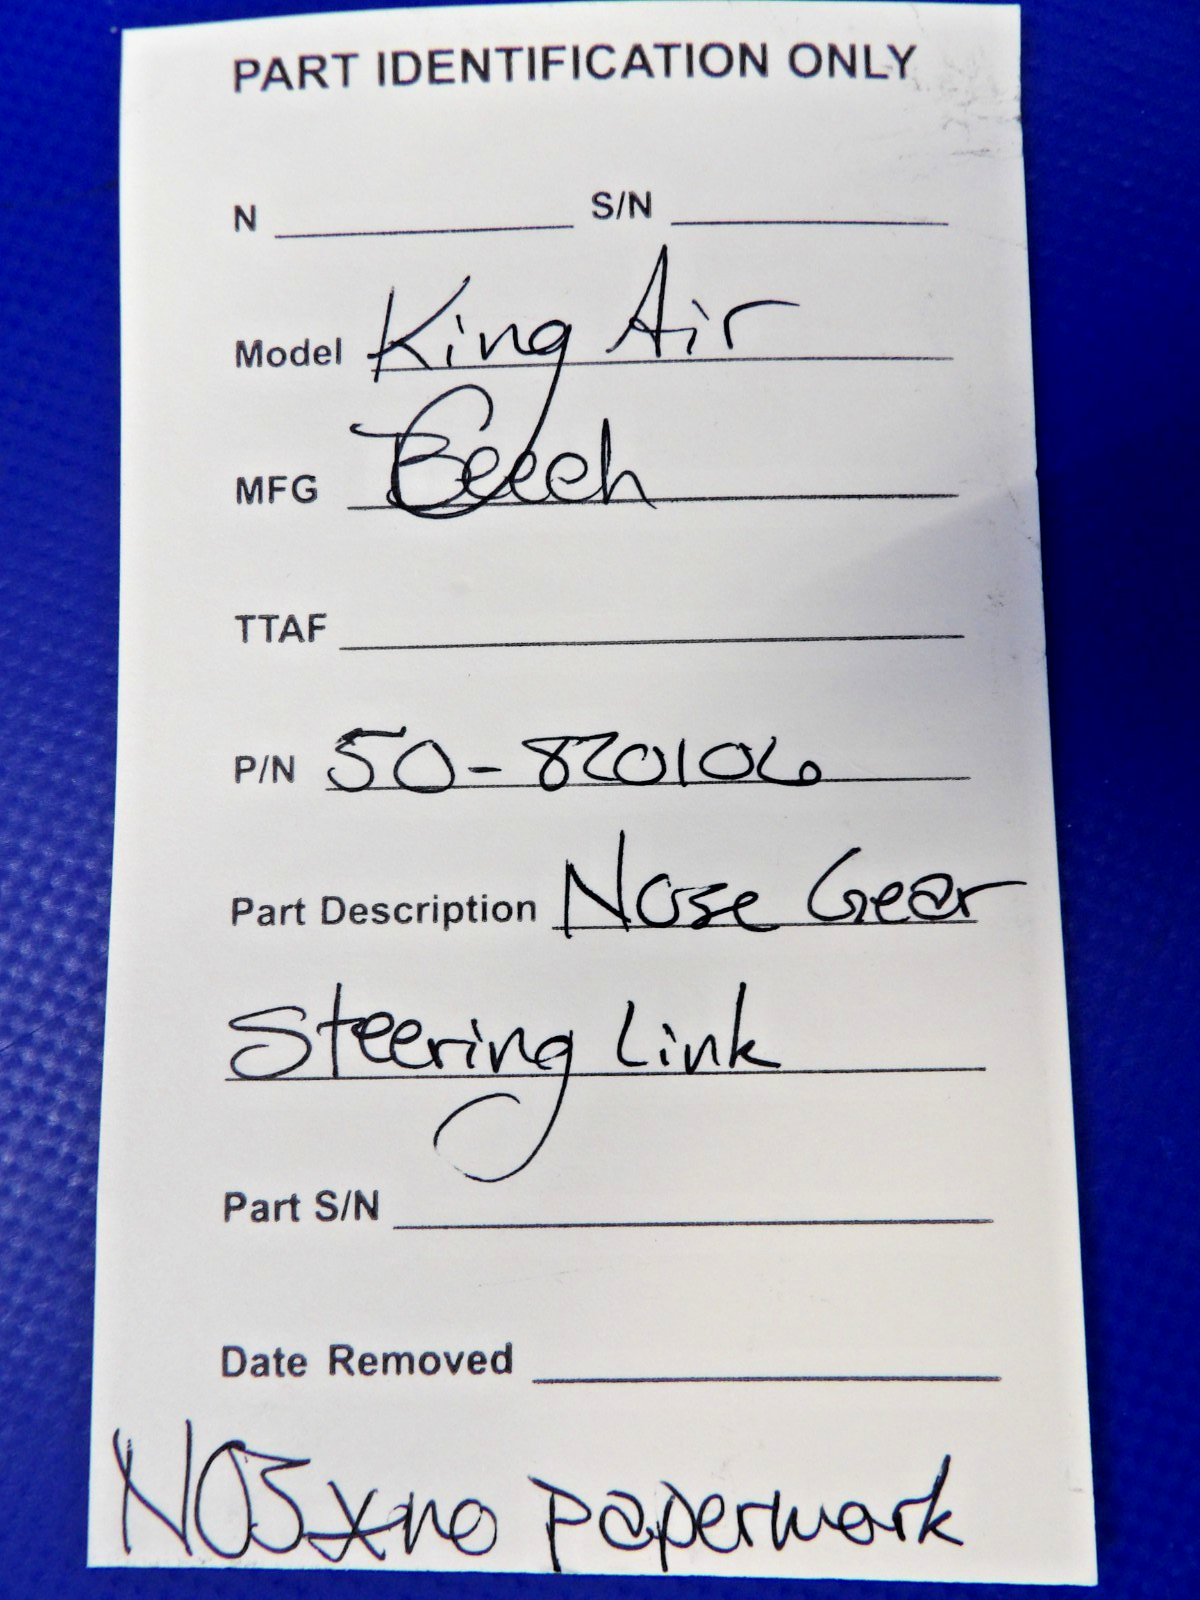 PART IDENTIFICATION ONLY
N S/N
Model King Air
MFG Beech
TTAF
P/N 50-820106
Part Description Nose Gear
Steering Link
Part S/N
Date Removed
NOS * no paperwork